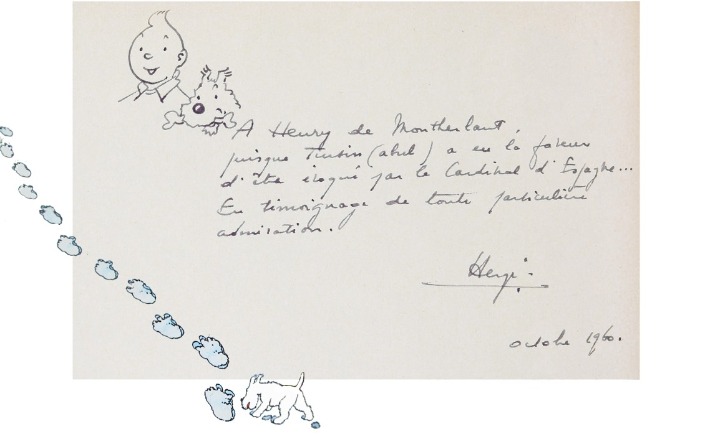 A Henry de Montherlant,
puisque Tintin a eu la faveur
d'être évoqué par le Cardinal d'Espagne...
En témoignage de toute particulière
admiration.
Hergé.
octobre 1960.